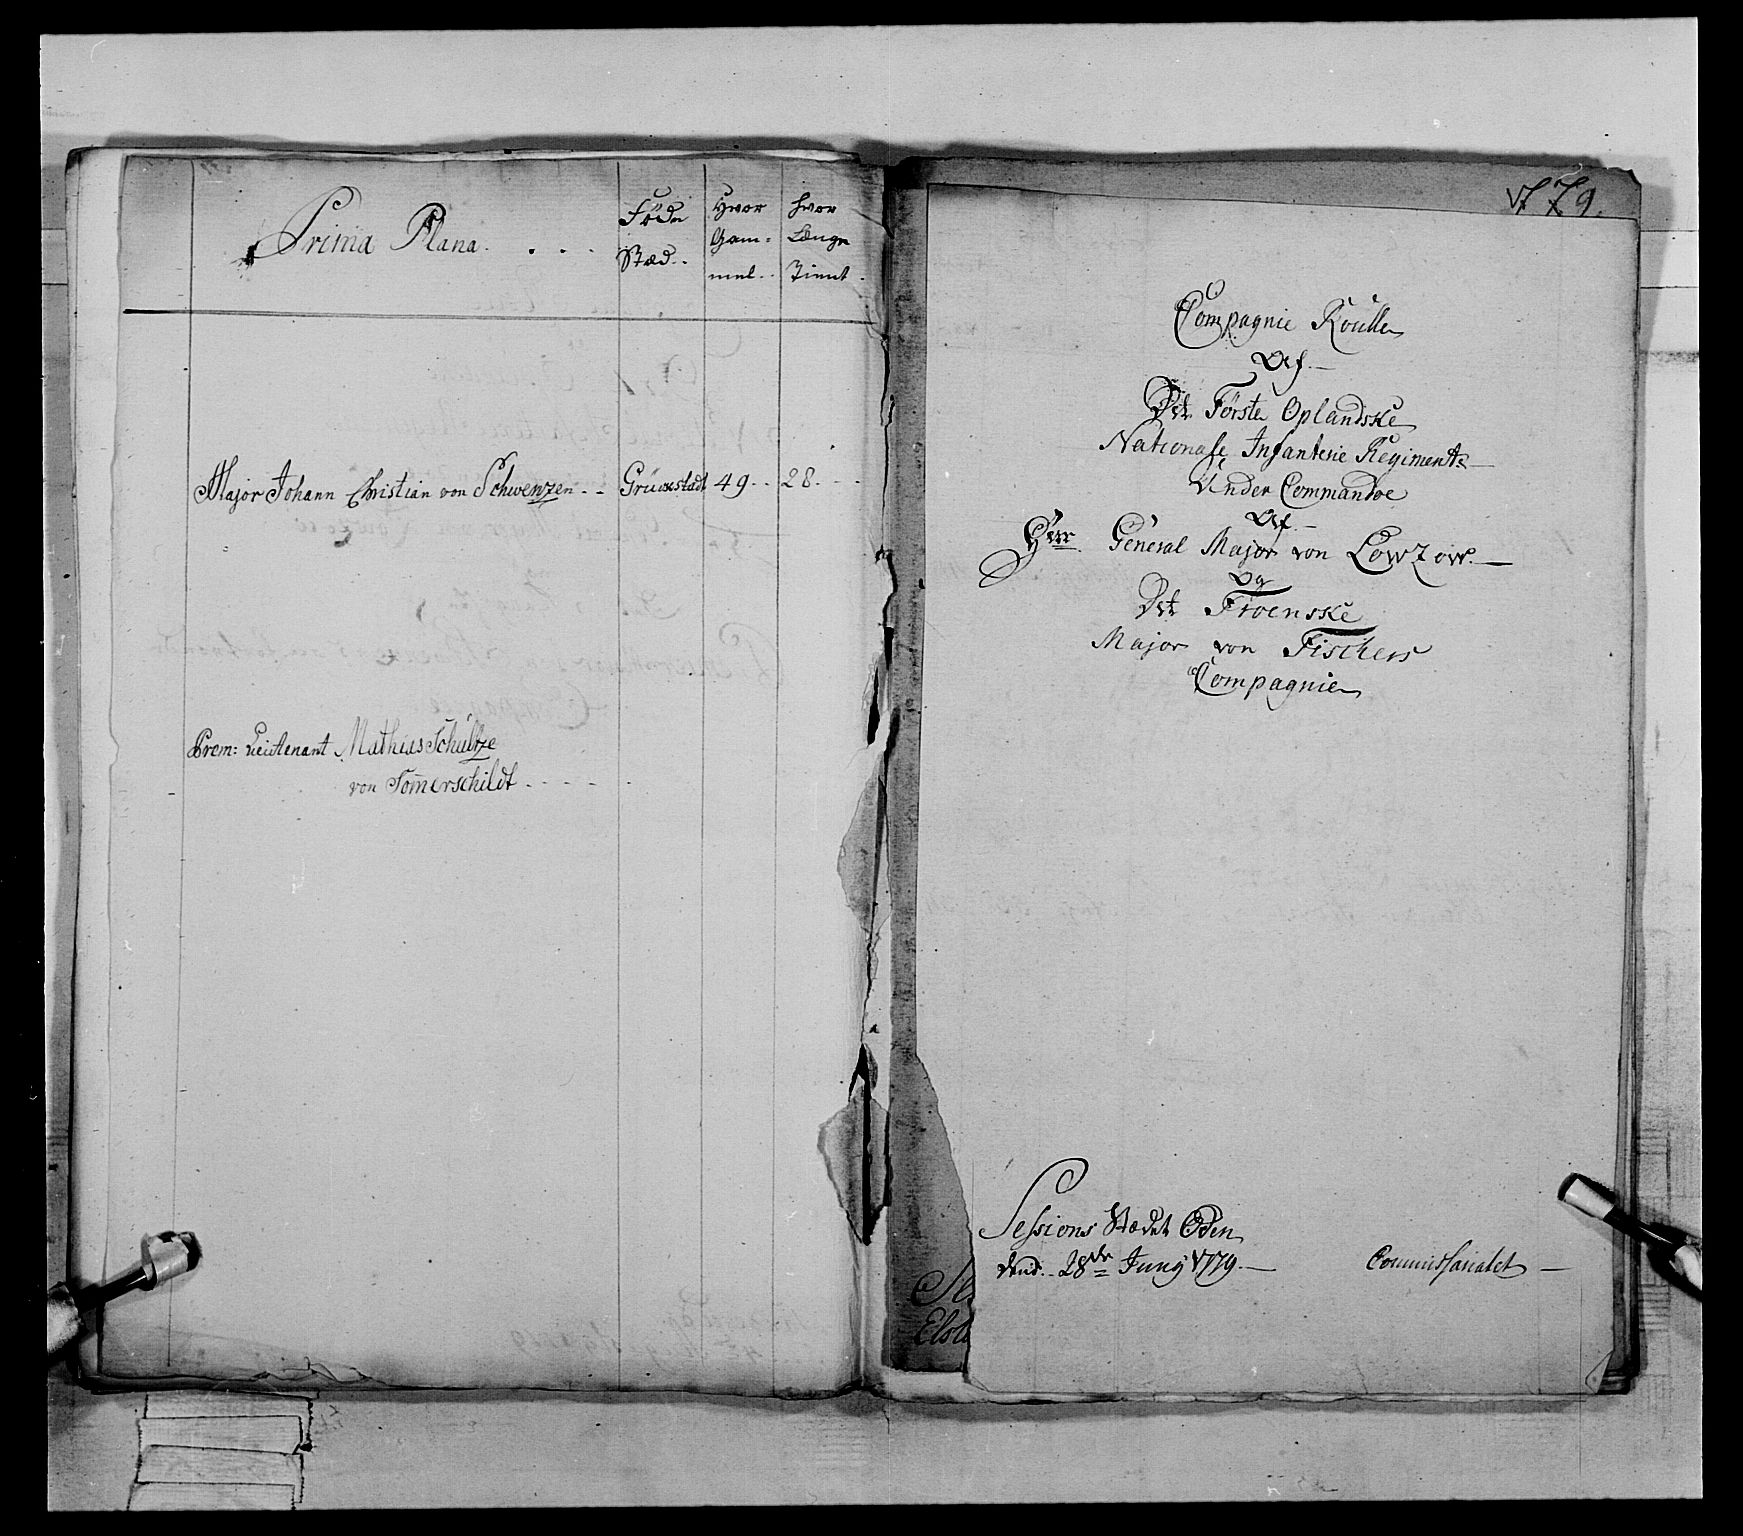 Prima Plana. . . .
Föde Stæd. .
Hvor Gam= mel. .
hvor Længe Tient.
Major Johann Christian von Schwenzen. . Grünestadt 49. . 28. . .
Prem: Lieutenant Mathias Schültze
von Som̄erschildt . . . . .
1779.
Compagnie Roulle
Af. —
Det Förste Oplandske
Nationale Infanterie Regiments —
Under Commandoe
Af. —
Herr General Major von Lowzow. —
Og
Det Froenske
Major von Fischers
Compagnie
Sessions Stædet Oden
dend. 28de Juny 1779. —
Commissariatet —